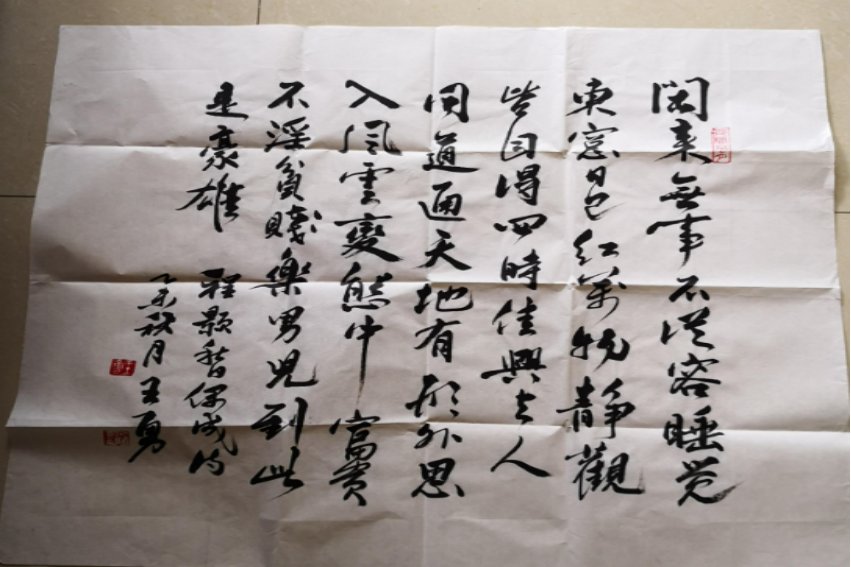 閑来無事不從容睡觉
東窓日已红萬物静觀
皆自得四時佳興与人
同道通天地有形外思
入風雲變態中富贵
不淫貧賤樂男兒到此
是豪雄
程颢秋日偶成
乙未秋月王勇